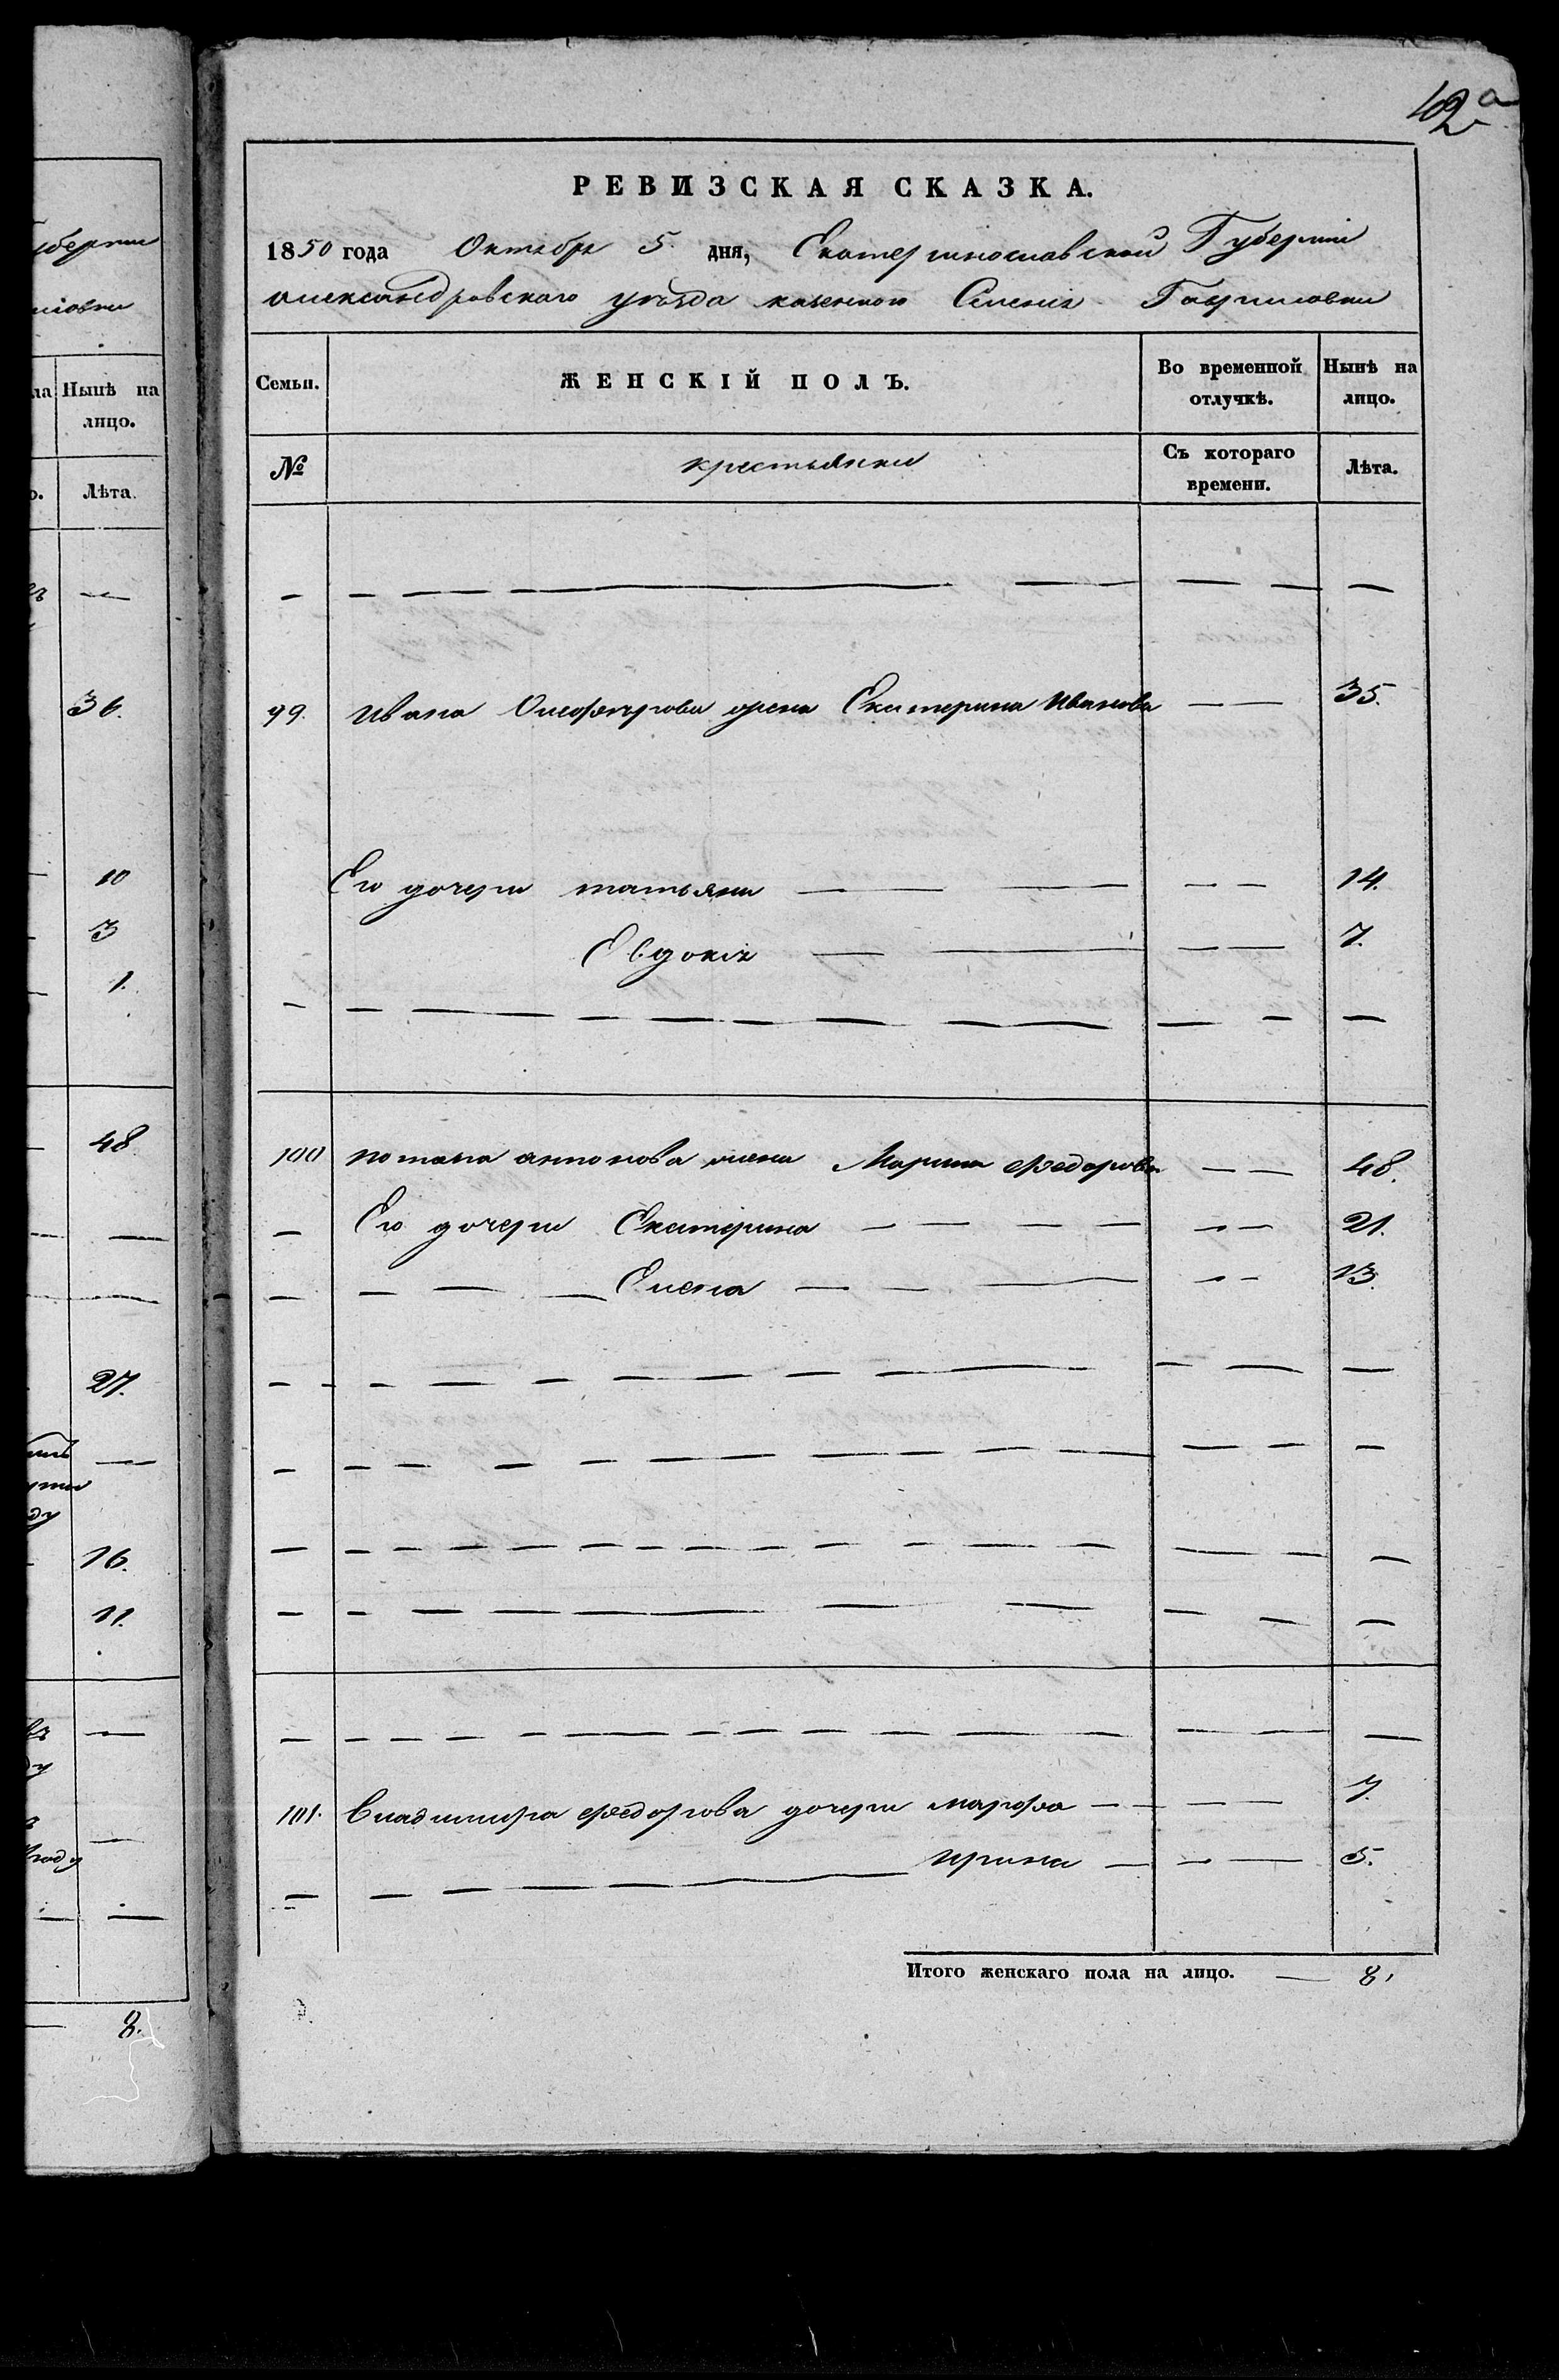 уберніи
иловки
ла Нынѣ на
лицо.
о. Лѣта.
въ —
36.
— 10
— 3
— 1.
— 48
— —
27.
—
ду
16.
11.
въ —
ду
году
— —
— 8.
42а
РЕВИЗСКАЯ СКАЗКА.
1850 года Октября 5 дня, Екатеринославской Губерніи
александровскаго уѣзда казенного Селенія Гавриловки
Семьи. ЖЕНСКІЙ ПОЛЪ. Во временной отлучкѣ. Нынѣ на лицо.
№ крестьянки Съ котораго времени. Лѣта.
— — — — — — — — — —
99. Ивана жена Екатерина Иванова — — 35.
Его дочери татьяна — — — — — 14.
Евдокія — — — — 7.
— — — — — — — — — — — —
100 потапа антонова жена Марина федорова — — 48.
— Его дочери Екатерина — — — — — — 21.
— — — — Елена — — — — — 13.
— — — — — — — — — — — —
— — — — — — — — — — — — —
— — — — — — — — — — — — — —
— — — — — — — — — — —
— — — — — — — — — — — — —
101. владимира федорова дочери марфа — — — — 7.
— — — — — — ирина — — — 5.
Итого женскаго пола на лицо. — 8,